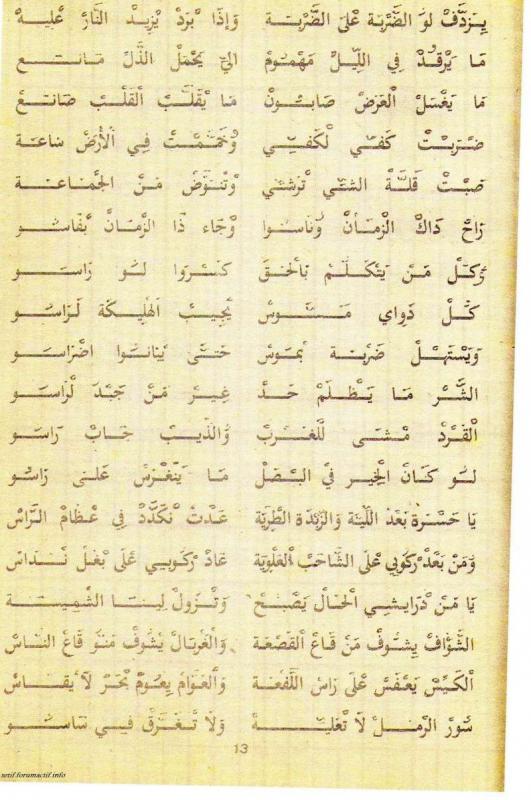 يزدَّفْ لَوْ الضَّرْبَة عْلَى الضَّرْبَة وَإِذَا بْرَدْ يْزِيدْ النَّارْ عْلِيهْ
مَا يَرْقُدْ فِي اللِّيلْ مَهْمُومْ الِيّ يَحْمَلْ الذُّلْ مَانَتِعْ
مَا يَغْسَلْ الْعَرْضْ صَابُونْ مَا يَقْلَبْ الْقَلْبْ صَانَعْ
ضْرَبْتْ كَفِّي لْكَفِّي وْخَمَّمْتْ فِي الْأَرْضْ سَاعَة
صَبْتْ قَلَّةْ الشَّيْ تَرْشِي وْتْنَوَّضْ مَنْ الجْمَاعَة
رَاحْ ذَاكْ الزّْمَانْ وْنَاسُو وْجَاء ذَا الزّْمَانْ بْفَاسُو
وْكُلّْ مَنْ يَتْكَلَّمْ بَالْحَقّْ كَسْرُوا لُو رَاسُو
كُلّْ دَوَاي مَسُّوسْ يْجِيبْ الْهْلِيكَة لْرَاسُو
وْيَسْتَهَلْ ضَرْبَة بْمُوسْ حَتَّى يْبَانُوا اضْرَاسُو
الشَّرْ مَا يَظْلَمْ حَدّْ غِيرْ مَنْ جَبْدَ لْرَاسُو
الْقَرْدْ مْشَى لَلْغَرْبْ وَالذِّيبْ جَابْ رَاسُو
لُو كَانْ الْخِيرْ فِي الْبْصَلْ مَا يَتْغْرَسْ عْلَى رَاسُو
يَا حَسْرَة بَعْدَ اللِّبَّة وَالزَّبْدَة الطَّرِيَّة عَدْتْ نْكَدَّدْ فِي عْظَامْ الرَّاسْ
وْمَنْ بَعْدْ رْكُوبِي عْلَى الشَّاحَبْ الْعَلْوِيَّة عَادْ رْكُوبِي عْلَى بْغَلْ نَدَّاسْ
يَا مَنْ ذَرَا بِشِي الْحَالْ يَصْبَحْ وْتَزُولْ لِيْنَا الشَّمِيسَة
الشَّوَّافْ يْشُوفْ مَنْ قَاعْ الْقَصْعَة وَالْغَرْبَالْ يْشُوفْ مَنُّو قَاعْ النَّاسْ
الْكَيِّسْ يَعْفَسْ عْلَى رَاسْ اللَّفْعَة وَالْعَوَّامْ يْعُومْ بْحَرْ لَا يَقْيَاسْ
سُورْ الرّْمَلْ لَا تْعَلِّيهْ وَلَا تَغْرَقْ فِي سَاسُو
13
setif.forumactif.info